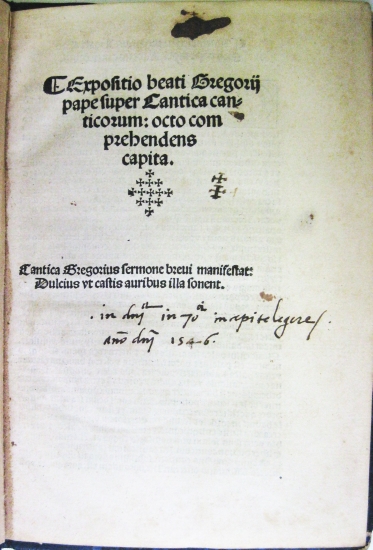 ¶Expositio beati Gregorij
pape super Cantica can-
ticorum: octo com
prehendens
capita.
Cantica Gregorius sermone breui manifestat:
Dulcius vt castis auribus illa sonent.
in in legere
año 1546.